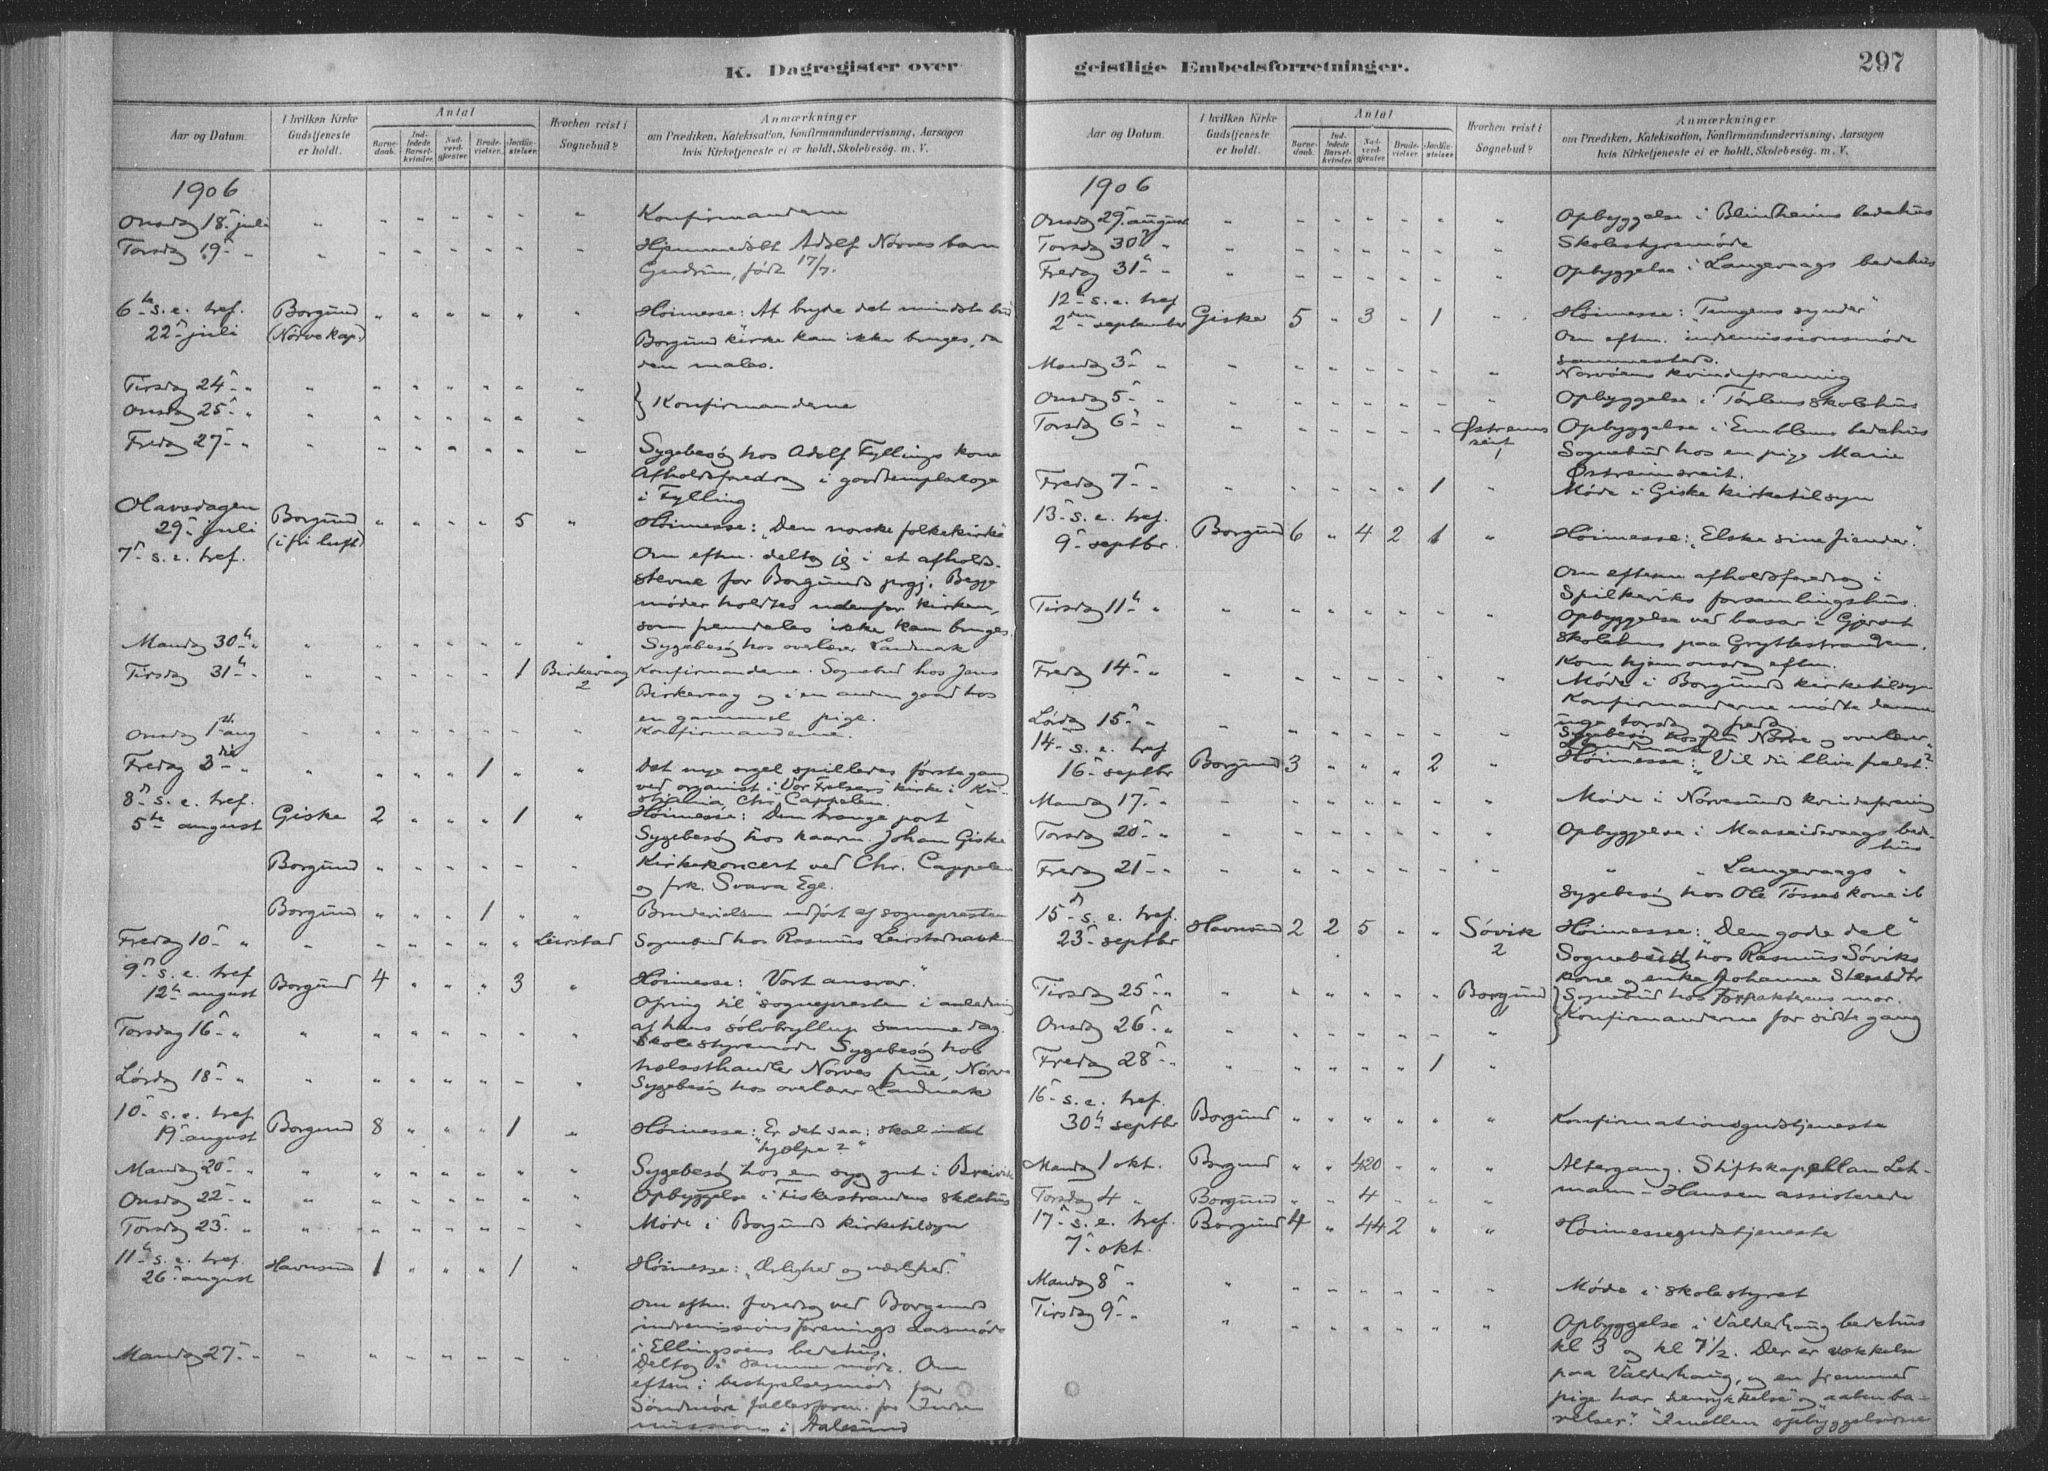 K. Dagregister over
Aar og Datum.
I hvilken Kirke Gudstjeneste er holdt.
Antal
Barnedaab.
Indledede Barselkvinder.
Nadverdgjæster.
Brudevielser.
Jordfæstelser.
Hvorhen reist i Sognebud?
Anmærkninger
om Prædiken, Katekisation, Konfirmandundervisning, Aarsagen
hvis Kirketjeneste ei er holdt, Skolebesøg. m. V.
1906
Onsdag 18. juli " " " " " " " Konfirmanderne
Torsdag 19. " " " " " " " " Hjemmedøbt Adolf Nørves barn
Gudrun, født 17/7.
6te s. e. tref. Borgund " " " " " " Høimesse: At bryde det mindste bud
22. juli (Nørve kap.) Borgund kirke kan ikke bruges, da
den males.
Tirsdag 24. " " " " " " " "
Onsdag 25. " " " " " " " " } Konfirmanderne
Fredag 27. " " " " " " " " Sygebesøg hos Adolf Fyllings kone
Afholdsforedrag i goodtemplarloge
i Fylling
Olavsdagen
29. juli Borgund " " " " 5 " Høimesse: "Den norske folkekirke"
7. s. e. tref. (i fri luft)
Om eftm. deltog jeg i et afholds-
stevne for Borgunds prgj. Begge
møder holdtes udenfor kirken,
som fremdeles ikke kan bruges.
Mandag 30. " " " " " " " " Sygebesøg hos overlærer Landmark
Tirsdag 31. " " " " " " 1 Birkevaag 2 Konfirmanderne. Sognebud hos Jens
Birkevaag og i en anden gaard hos
en gammel pige.
Onsdag 1ste aug " " " " " " " Konfirmanderne.
Fredag 3die " " " " " 1 " " Det nye orgel spilledes første gang
ved organist i Vor Frelsers kirke i Kri-
stiania, Chr. Cappelen.
8. s. e. tref.
5te august Giske 2 " " " 1 " Høimesse: Den trange port
Sygebesøg hos kaarm. Johan Giske
Borgund " " " " " " Kirkekoncert ved Chr. Cappelen
og frk. Svava Ege.
Borgund " " " 1 " " Brudevielsen udført af sognepresten
Fredag 10. " " " " " " " Leirstad Sognebud hos Rasmus
9. s. e. tref
12te august Borgund 4 " " " 3 " Høimesse: "Vort ansvar."
Opring til sognepresten i anledning
af hans sølvbryllup samme dag.
Torsdag 16. " " " " " " " " Skolestyremøde. Sygebesøg hos
Nørves frue, Nørve
Lørdag 18. " " " " " " " " Sygebesøg hos overlærer Landmark
10. s. e. tref
19. august Borgund 8 " " " 1 " Høimesse: Er det saa: skal intet
hjælpe?"
Mandag 20. " " " " " " " " Sygebesøg hos en syg gut i Breivik
Onsdag 22. " " " " " " " " Opbyggelse i Fiskestrandens skolehus
Torsdag 23. " " " " " " " " Møde i Borgunds kirketilsyn
11te s. e. tref.
26. august Havnsund 1 " " " 1 " Høimesse: "Ærlighed og kærlighed."
Om eftm. foredrag ved Borgunds
indremissionsforenings aarsmøde
i Ellingsøens bedehus.
Mandag 27. " " " " " " " " Deltog i samme møde. Om
eftm i bestyrelsesmøde for
Søndmøre fællesforen. for Indre
mission i Aalesund
geistlige Embedsforretninger.
297
Aar og Datum.
I hvilken Kirke Gudstjeneste er holdt.
Antal
Barnedaab.
Indledede Barselkvinder.
Nadverdgjæster.
Brudevielser.
Jordfæstelser.
Hvorhen reist i Sognebud?
Anmærkninger
om Prædiken, Katekisation, Konfirmandundervisning, Aarsagen
hvis Kirketjeneste ei er holdt, Skolebesøg. m. V.
1906
Onsdag 29. august " " " " " " " Opbyggelse i Blindheims bedehus
Torsdag 30. " " " " " " " " Skolestyremøde
Fredag 31. " " " " " " " " Opbyggelse i Langevaags bedehus
12. s. e. tref
2den september Giske 5 " 3 " 1 " Høimesse: "Tungens synder"
Om eftm. indremissionsmøde
sammesteds.
Mandag 3. " " " " " " " " Norvøens kvindeforening
Onsdag 5. " " " " " " " " Opbyggelse i Tørlens skolehus
Torsdag 6. " " " " " " " Østrems reit 1 Opbyggelse i Emblems bedehus
Sognebud hos en pige Marie
Østreimsreit.
Fredag 7. " " " " " " 1 " Møde i Giske kirketilsyn
13. s. e. tref.
9. septbr. Borgund 6 " 4 2 1 " Høimesse: "Elske sine fiender."
Om eftm afholdsforedrag i
Spilkeviks forsamlingshus.
Tirsdag 11te " " " " " " " " Opbyggelse ved basar i
skolehus paa Gryttestranden.
Kom hjem onsdag eftm.
Fredag 14. " " " " " " " " Møde i Borgunds kirketilsyn
Konfirmanderne mødte denne
uge torsdag og fredag.
Lørdag 15. " " " " " " " " Sygebesøg hos fru Nørve og overlærer
Landmark
14. s. e. tref
16. septbr Borgund 3 " " " 2 " Høimesse: "Vil du blive frelst?"
Mandag 17. " " " " " " " " Møde i Nørvesunds kvindeforening
Torsdag 20. " " " " " " " " Opbyggelse i Maaseidevaags bede-
hus
Fredag 21. " " " " " " " " " " Langevaags "
Sygebesøg hos Ole Tosses kone ib
15. s. e. tref.
23. septbr Havnsund 2 2 5 " " Søvik 2 Høimesse: "Den gode del"
Sognebud hos Rasmus Søviks
kone og enke Johanne
Tirsdag 25. " " " " " " " Borgund } Sognebud hos Forpakterens mor.
Onsdag 26. " " " " " " " " Konfirmanderne for sidste gang
Fredag 28. " " " " " " 1 "
16. s. e. tref.
30te septbr Borgund " " " " " " Konfirmationsgudstjeneste
Mandag 1 okt. Borgund " " 420 " " " Altergang. Stiftskapellan Leh-
mann-Hansen assisterede
Torsdag 4 " Borgund " " 4 " "
17. s. e. tref. Borgund 4 " 44 2 " " Høimessegudstjeneste
7. okt.
Mandag 8. " " " " " " " " Møde i skolestyret
Tirsdag 9. " " " " " " " " Opbyggelse i Valderhaug bedehus
kl 3 og kl 7 1/2. Der er vækkelse
paa Valderhaug, og en fremmed
pige har "henrykkelse" og "aabenba-
relser." Imellem opbyggelserne